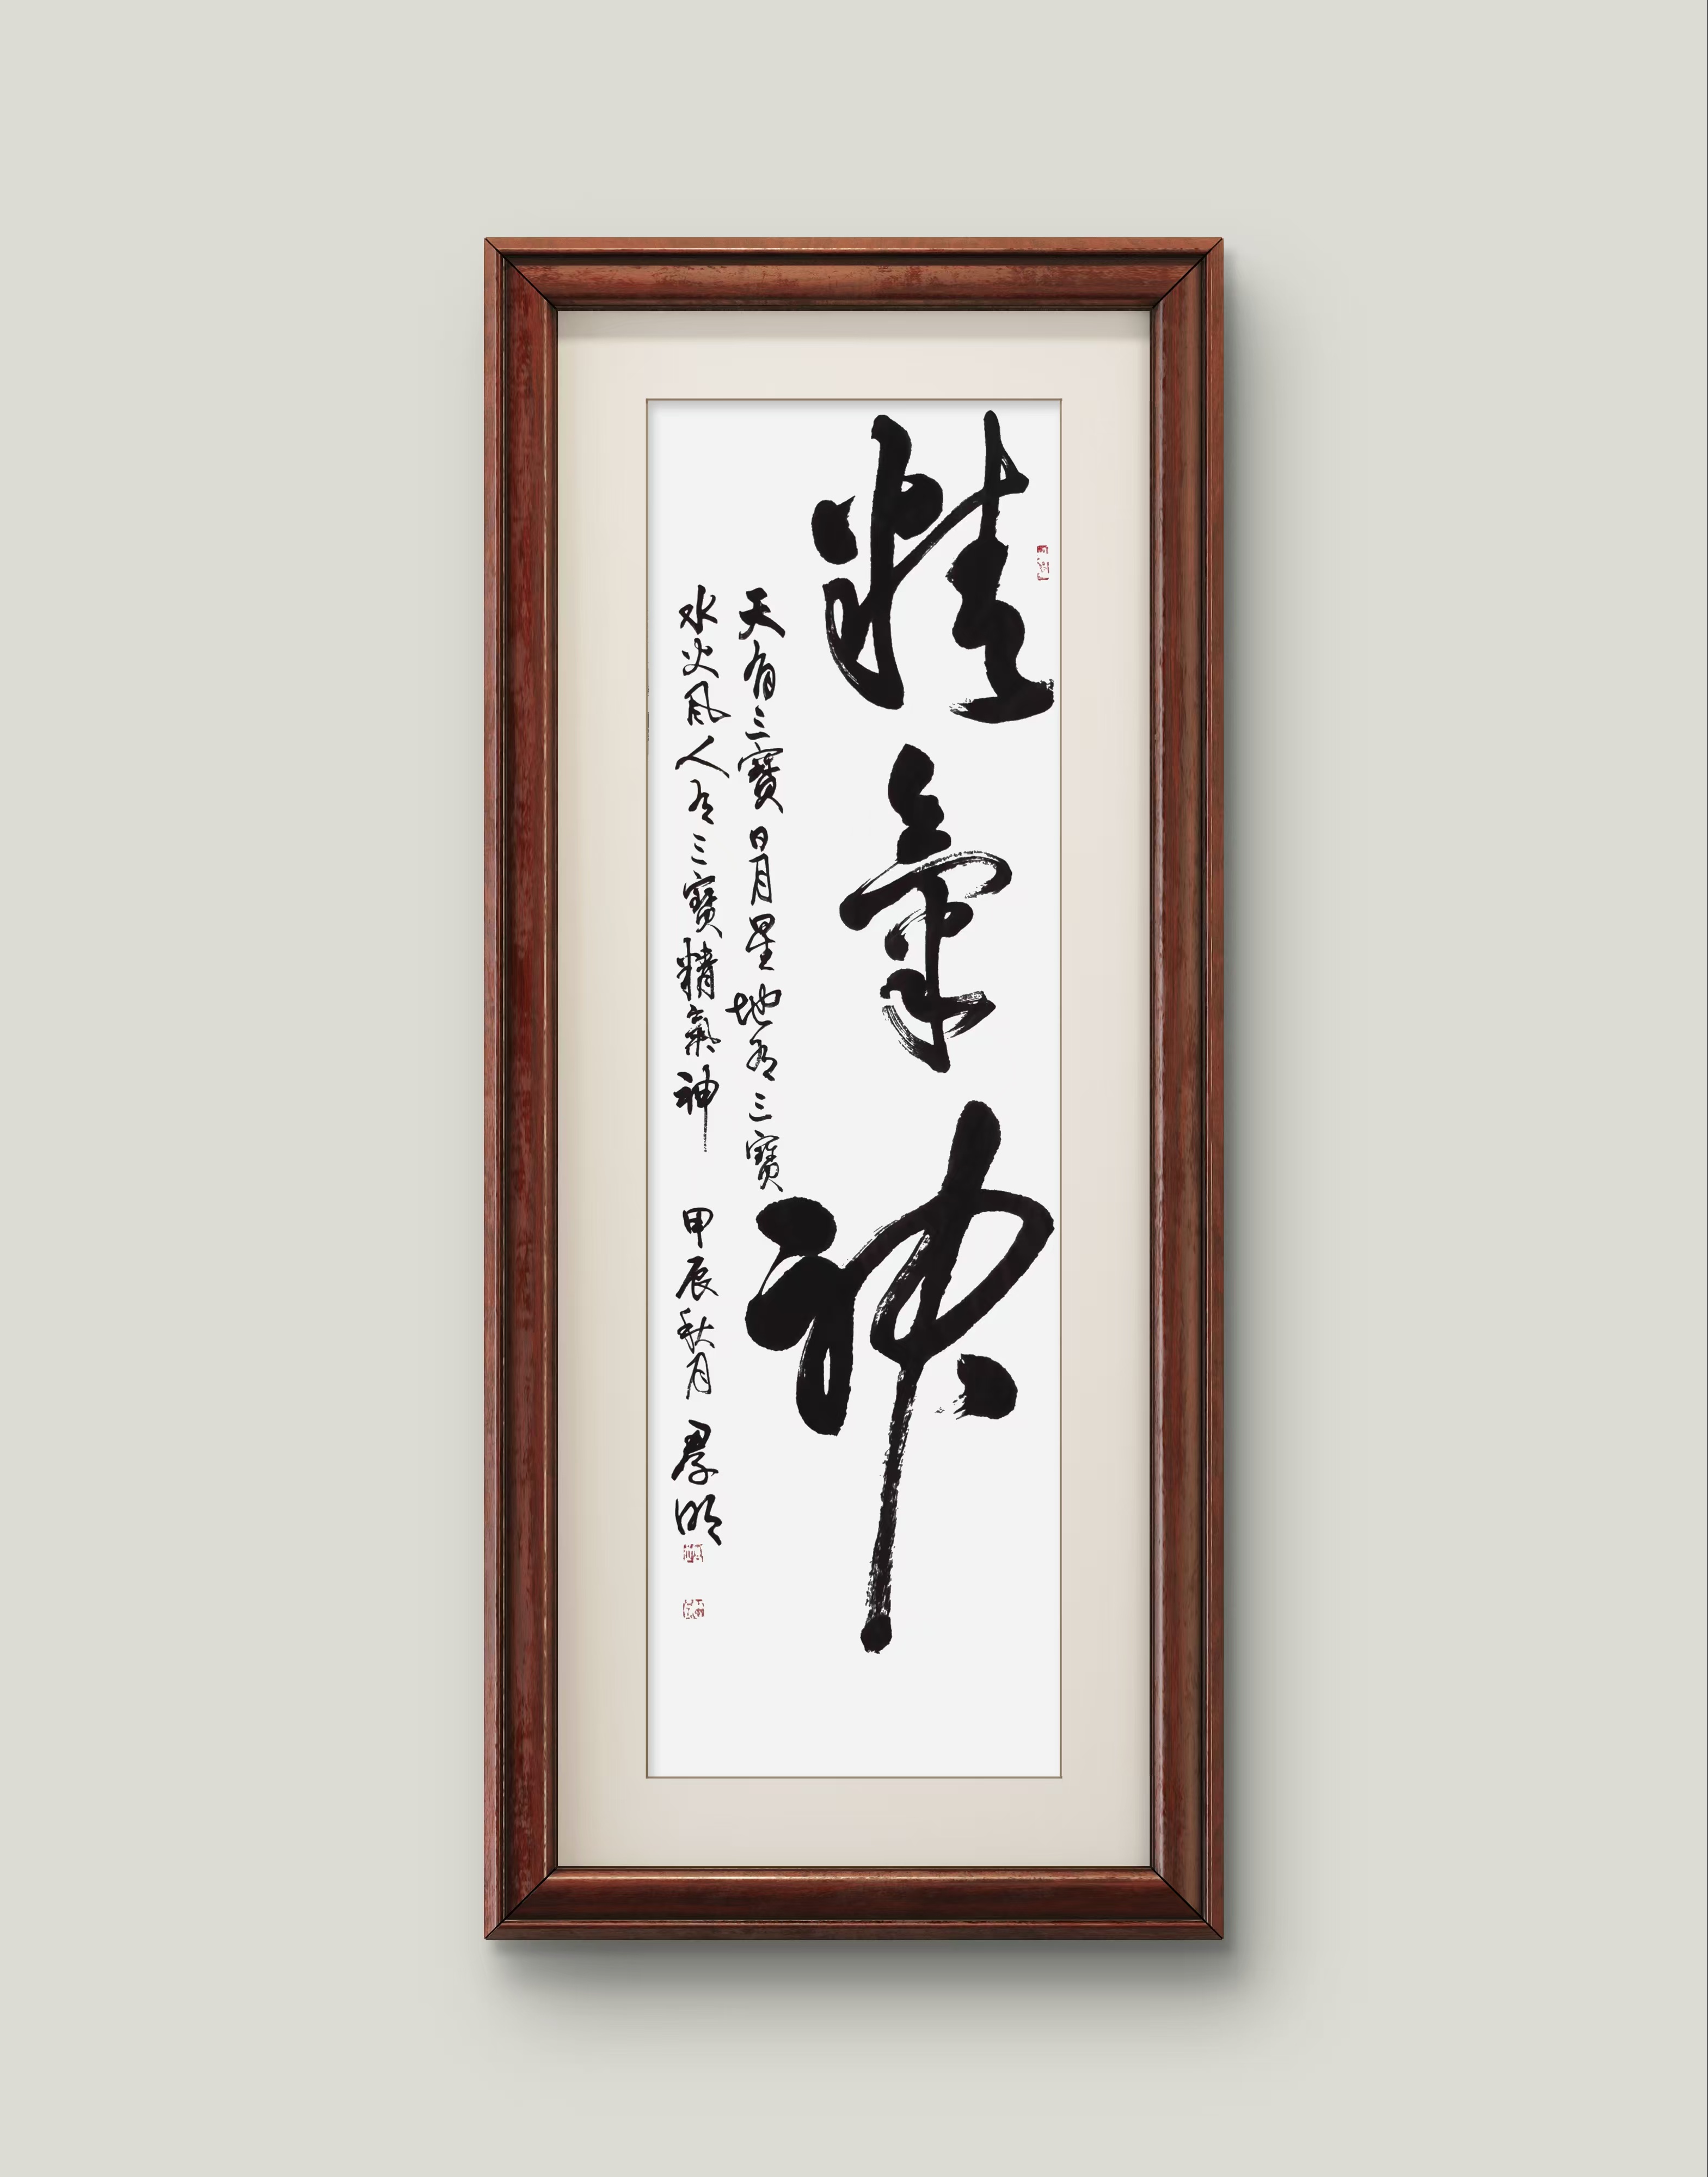 精氣神
天有三寶日月星地有三寶
水火風人有三寶精氣神 甲辰秋月 群明